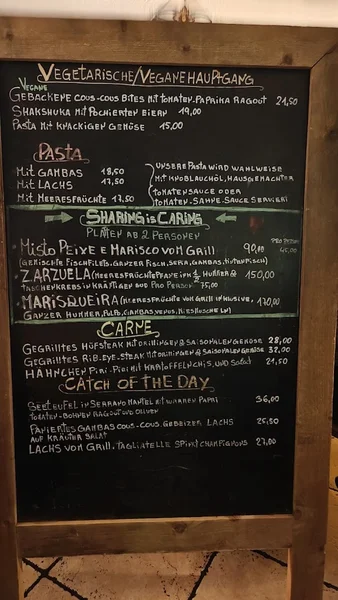 Vegetarische/Vegane Hauptgang
Vegane
Gebackene Cous-Cous Bites mit Tomaten-Paprika Ragout 21,50
Shakshuka mit Pochierten Eiern 19,00
Pasta mit Knackigen Gemüse 15,00
Pasta
Mit Gambas 18,50
Mit Lachs 17,50
Mit Meeresfrüchte 17,50
Unsere Pasta wird wahlweise
mit Knoblauchöl, Hausgemachter
Tomatensauce oder
Tomaten-Sahne-Sauce serviert
Sharing is Caring
Platten ab 2 Personen
Misto Peixe e Marisco vom Grill 90,00 pro Person 45,00
(Gemischte Fischfilets, Ganzer Fisch, Gambas, Tintenfisch)
Zarzuela (Meeresfrüchtepfanne in 1/2 Hummer & 150,00
Taschenkrebs in kräftigen Sud Pro Person 75,00
Marisqueira (Meeresfrüchte vom Grill inklusive, 170,00
Ganzer Hummer, Pulpo, Gambas, Venus, Miesmuscheln)
Carne
Gegrilltes Hüfsteak mit Drillingen & Saisonalengemüse 28,00
Gegrilltes Rib-Eye-Steak mit Drillingen & Saisonalengemüse 32,00
Hähnchen Piri-Piri mit Kartoffelnchis, und Salat 21,50
Catch of the Day
Seeteufel in Serrano Mantel mit warmen Papri 36,00
Tomaten-Bohnen Ragout und Oliven
Paniertes Gambas Cous-Cous, Gebeizer Lachs 25,50
auf Kräuter Salat
Lachs vom Grill, Tagliatelle Spinat Champignons 27,00